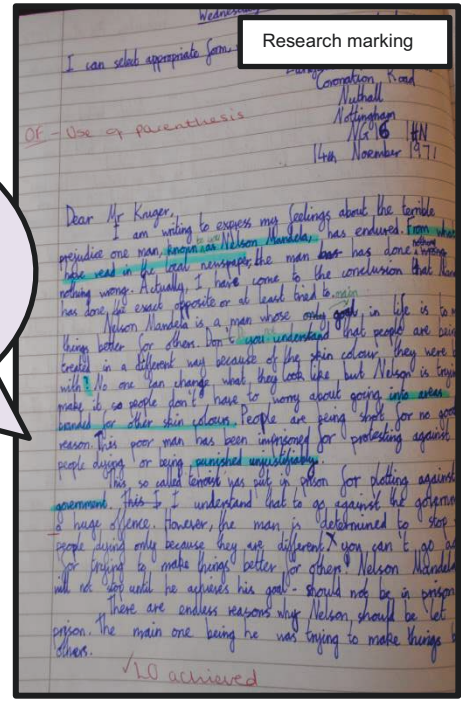 Wednesday
Research marking
I can select appropriate form,
Coronation Road
Nuthall
OF - Use of parenthesis
Nottingham
NG16 1HN
14th Noember 1971
Dear Mr Kruger,
I am writing to express my feelings about the terrible
prejudice one man, known as Nelson Mandela, has endured. From what
have read in the local newspaper, the man has done nothing
nothing wrong. Actually, I have come to the conclusion that
has done the exact opposite or at least tried to.
Nelson Mandela is a man whose only main goal, in life is to
things better for others. Don't you understand that people are
treated in a different way because of the skin colour they were
with? No one can change, what they look like but Nelson is trying
make it so people don't have to worry about going into areas
banded for other skin colours. People are being shot for no good
reason. This poor man has been imprisoned for protesting against
people dying or being punished unjustifiably.
This so called terrorist was put in prison for plotting against
government. This I I understand that to go against the
a huge offence. However, the man is determined to stop
people dying only because they are different X you can't go
for trying to make things better for other! Nelson
will not stop until he achieves his goal - should not be in prison
There are endless reasons why Nelson, should be let
prison. The main one being he was trying to make things
others.
✓LO achieved